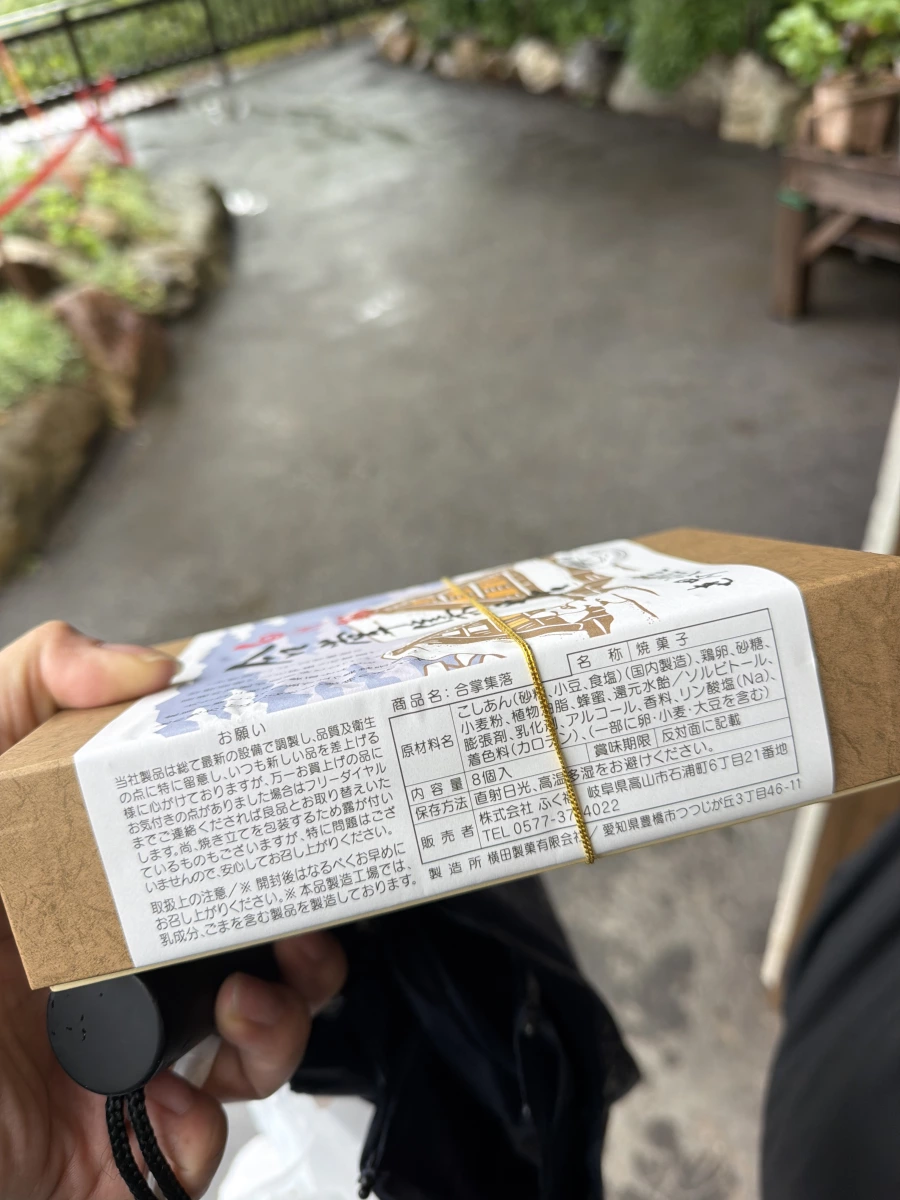 合掌集落
お願い
当社製品は総て最新の設備で調製し、品質及衛生
の点に特に留意し、いつも新しい品を差上げる
様に心がけておりますが、万一お買上げの品に
お気付きの点がありました場合はフリーダイヤル
までご連絡くだされば良品とお取り替えいた
します。尚、焼き立てを包装するため露が付い
ているものもございますが、特に問題はござ
いませんので、安心してお召し上がりください。
取扱上の注意/※開封後はなるべくお早めに
お召し上がりください。※本品製造工場では、
乳成分、ごまを含む製品を製造しております。
商品名:合掌集落
名称 焼菓子
原材料名 こしあん(砂糖、小豆、食塩)(国内製造)、鶏卵、砂糖、
小麦粉、植物油脂、蜂蜜、還元水飴/ソルビトール、
膨張剤、乳化剤、アルコール、香料、リン酸塩(Na)、
着色料(カロチン)、(一部に卵・小麦・大豆を含む)
内容量 8個入 賞味期限 反対面に記載
保存方法 直射日光、高温多湿をお避けください。
販売者 株式会社 ふく 岐阜県高山市石浦町6丁目21番地
TEL 0577-3 4022
製造所 横田製菓有限会社/愛知県豊橋市つつじが丘3丁目46-11